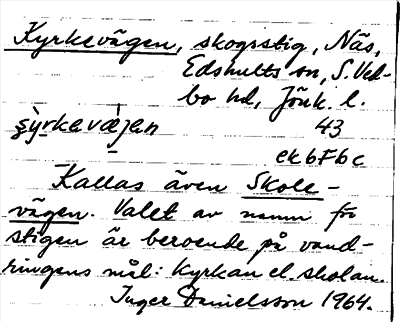 Kyrkevägen, skogsstig, Näs,
Edshults sn, S. Ved-
bo hd, Jönk. l.
şy̆rkevæ̀jen 43
ek6F6c
Kallas även Skole-
vägen. Valet av namn för
stigen är beroende på vand-
ringens mål: kyrkan el. skolan.
Inger Danielsson 1964.